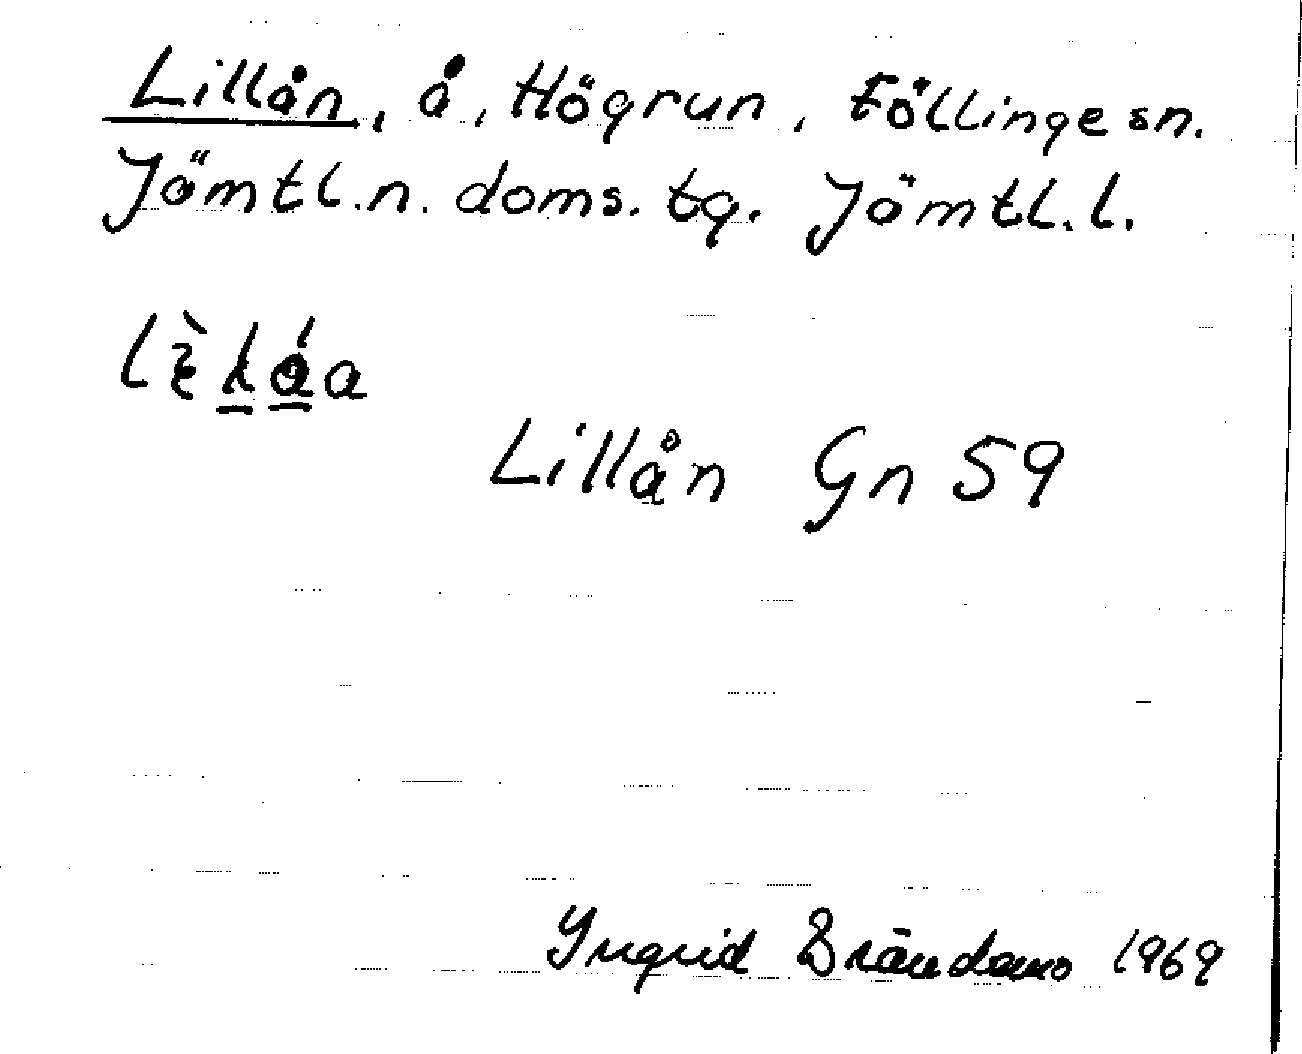 Lillån, å, Högrun, Föllinge sn.
Jämtl.n. doms. tg. Jämtl.l.
Lillån Gn 59
Ingrid 1969